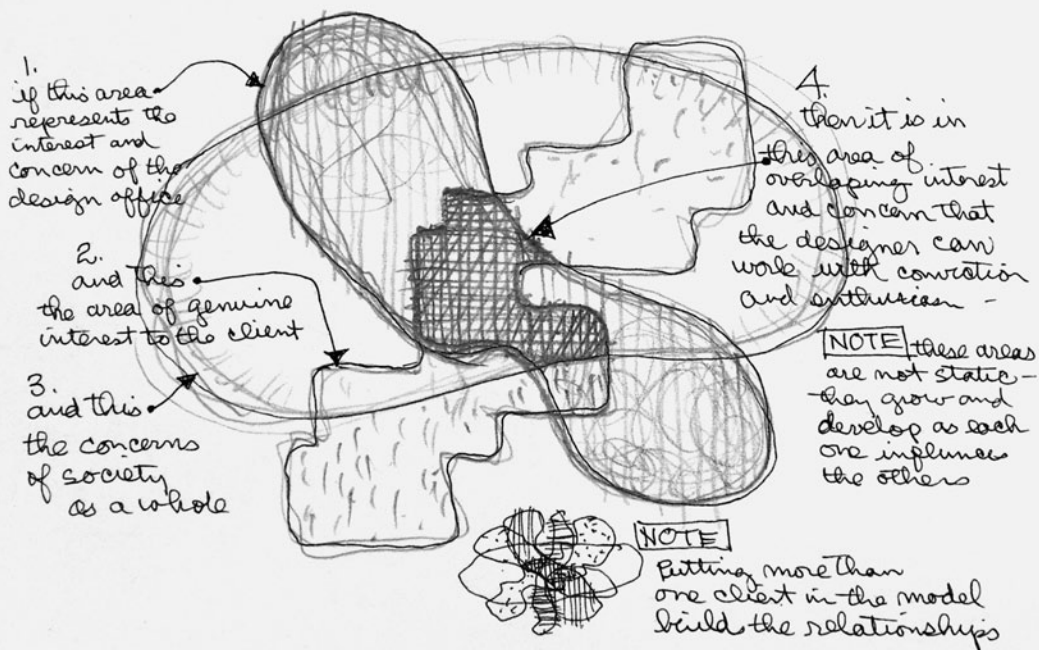 1.
if this area
represents the
interest and
concern of the
design office
2.
and this
the area of genuine
interest to the client
3.
and this
the concerns
of society
as a whole
4.
then it is in
this area of
overlaping interest
and concern that
the designer can
work with conviction
and enthusiasm -
NOTE these areas
are not static -
they grow and
develop as each
one influences
the others
NOTE
Putting more than
one client in the model
builds the relationships